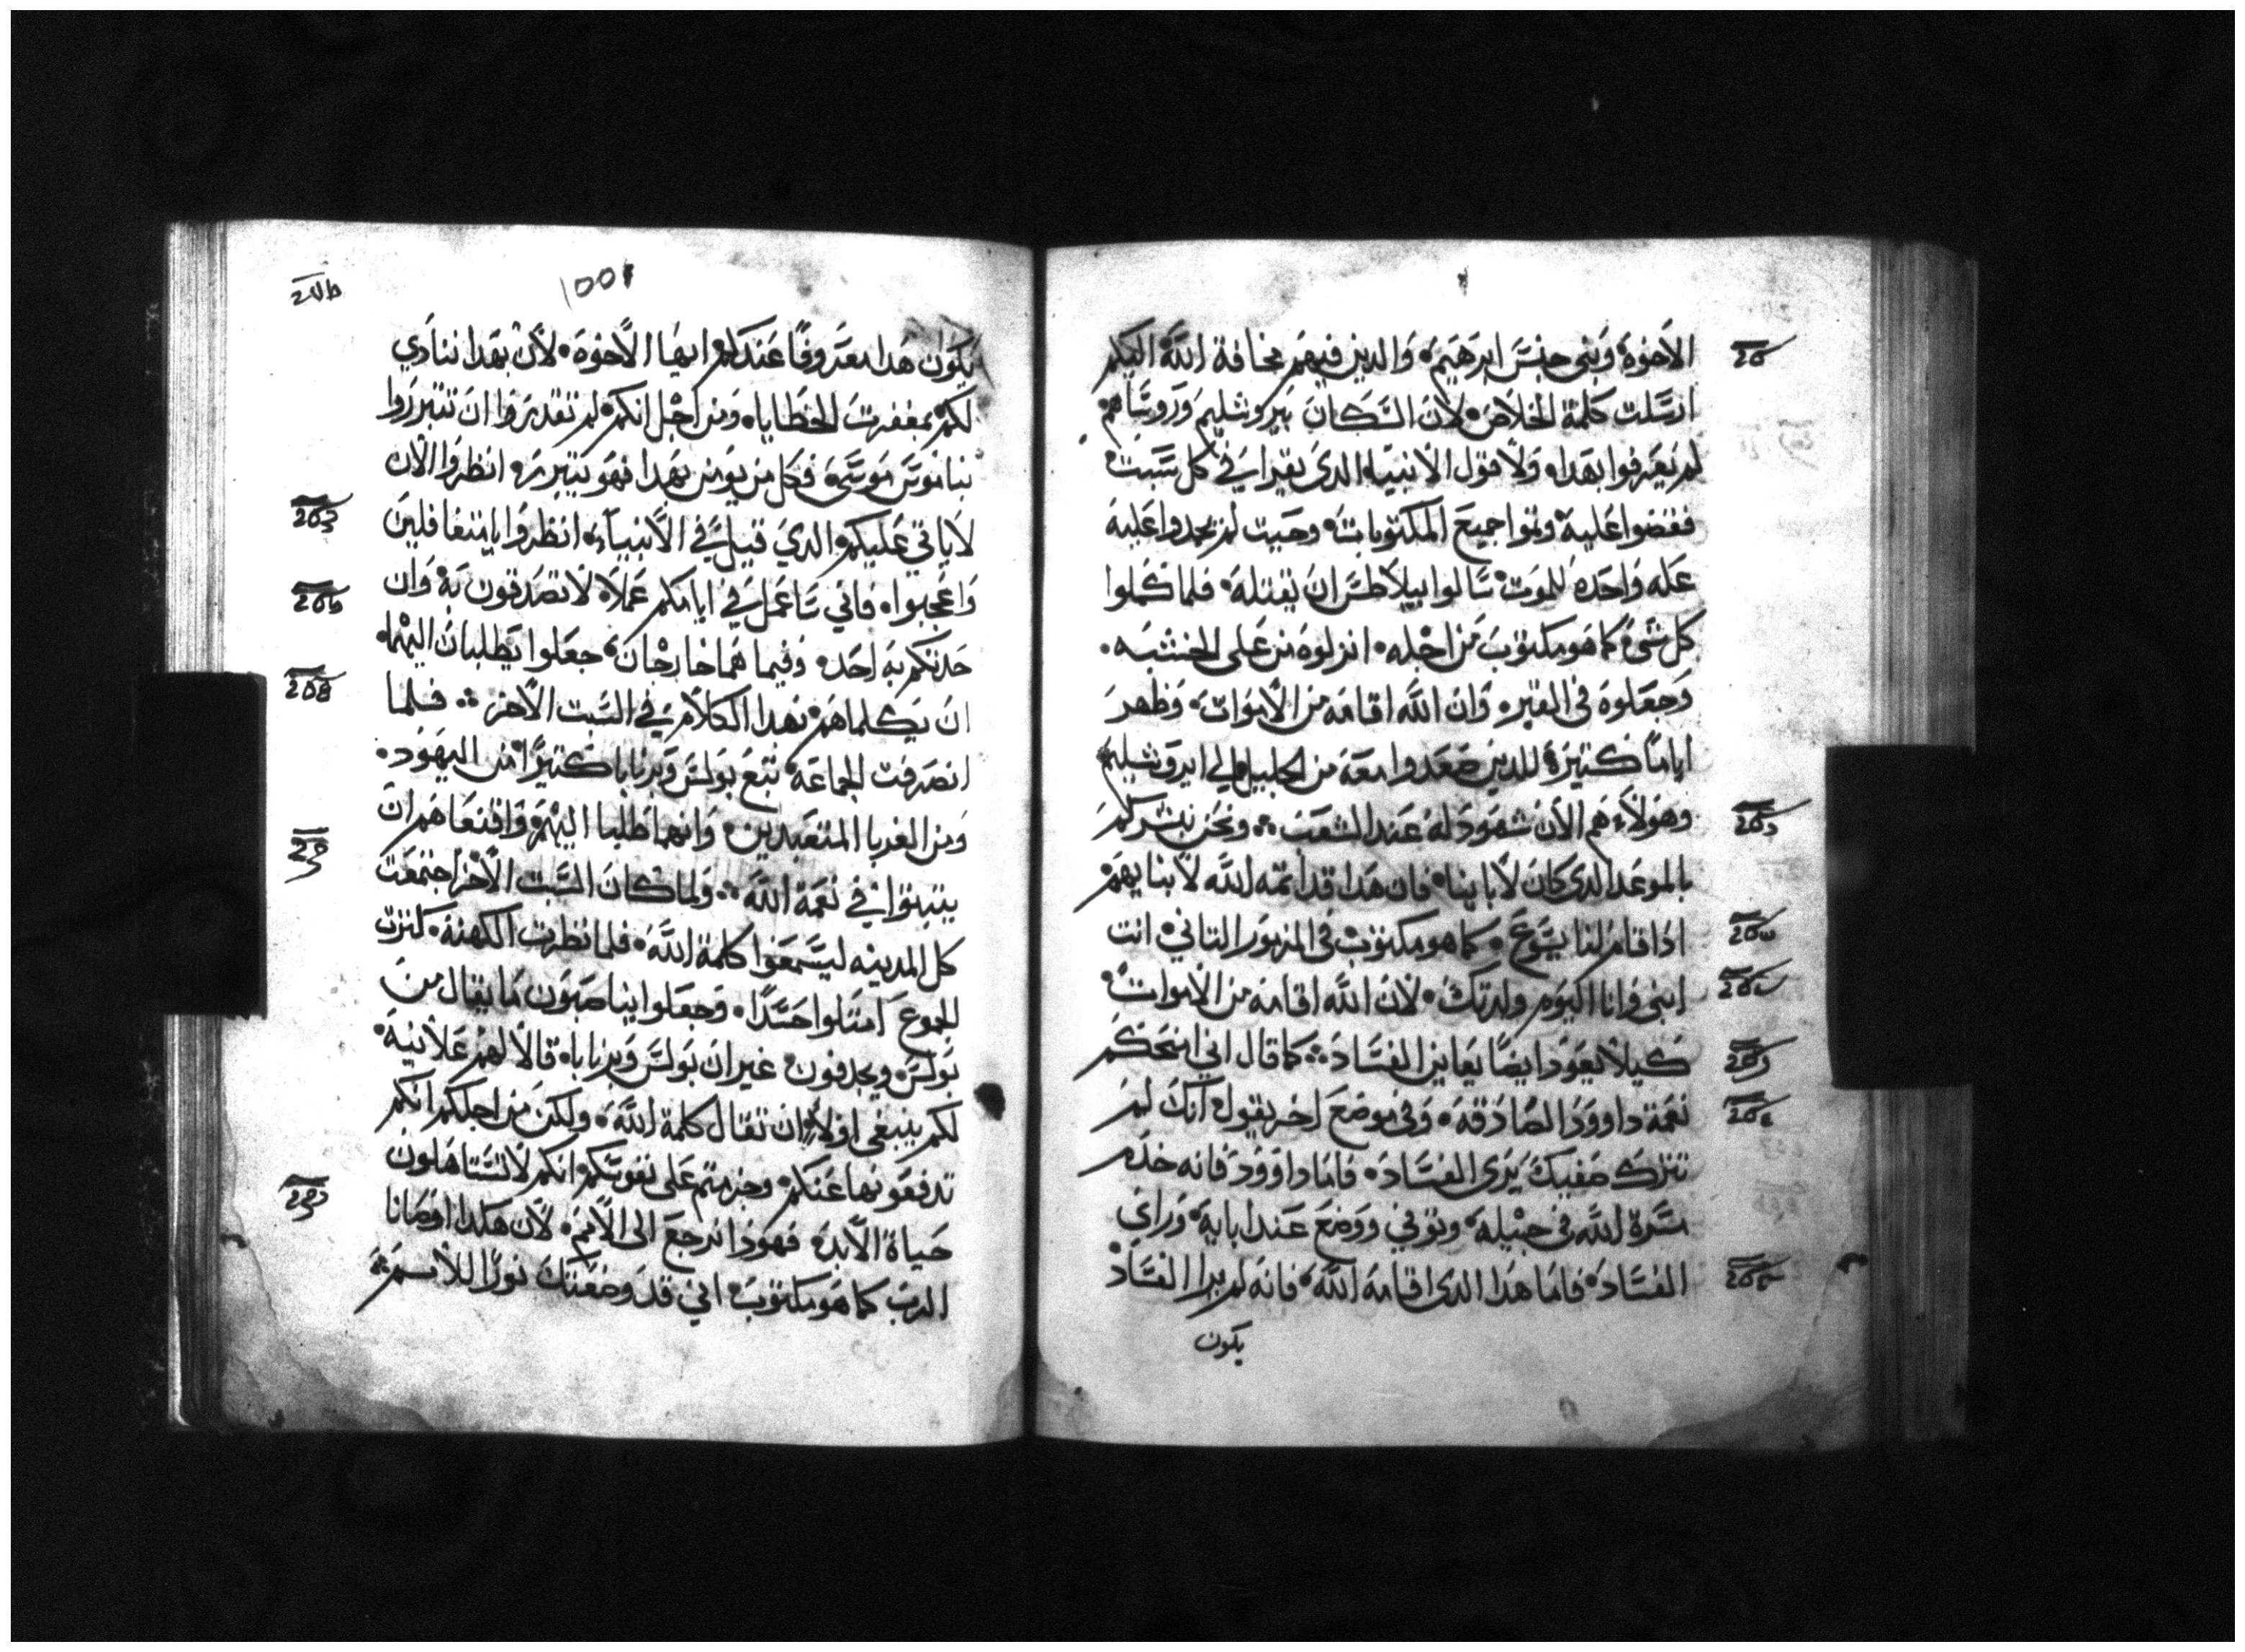 الاخوة وبني جنس ابرهيم والدين فيهم مخافة الله اليكم
ارسلت كلمة الخلاص لان السكان بيروشليم وروساهم
لم يعرفوا بهدا ولا قول الانبياء الدي يقرا في كل سبت
فقضوا علية وتموا جميع المكتوبات وحيت لم يجدوا علية
عله واحده للموت سالوا بيلاطس ان يقتله فلما كملوا
كل شي كما هو مكتوب من اجله انزلوه من على الخشبه
وجعلوه في القبر وان الله اقامه من الاموات وظهر
اياما كتيرة للدين صعدوا معة من الجليل الي ايروشليم
وهولاء هم الان شهود له عند الشعب ونحن نبشركم
بالموعد الدي كان لابا ينا فان هدا قد اتمه الله لابنايهم
ادا قام لنا يسوع كما هو مكتوب في المزمور التاني انت
ابني وانا اليوم ولدتك لان الله اقامه من الاموات
كيلا يعود ايضا يعاين الفساد كما قال اني امنحكم
نعمة داوود الصادقه وفي موضع اخر يقول انك لم
تترك صفيك يرى الفساد فاما داوود فانه خدم
مسرة الله في جيله وتوفي ووضع عند ابايه وراي
الفساد فاما هدا الدي اقامه الله فانه لم يرا الفساد
يكون
1001
يكون هدا معروفا عندكم ايها الاخوة لان بهدا ننادي
لكم بمغفرت الخطايا ومن اجل انكم لم تقدروا ان تتبرروا
بناموس موسي فكل من يومن بهدا فهو يتبرر انظروا الان
لا ياتي عليكم الدي قيل في الانبياء انظروا يا متغافلين
واعجبوا فاني ساعمل في ايامكم عملا لا تصدقون به وان
حدتكم به احد وفيما هما خارجان جعلوا يطلبان اليهما
ان يكلماهم بهدا الكلام في السبت الاخر فلما
انصرفت الجماعة تبع بولس وبرنابا كتيرا من اليهود
ومن الغربا المتعبدين وانهما طلبا اليهم واقنعاهم ان
يتبتوا في نعمة الله ولما كان السبت الاخر اجتمعت
كل المدينه ليسمعوا كلمة الله فلما نظرت الكهنة كترت
الجموع امتلوا حسدا وجعلوا يناصبون ما يقال من
بولس ويجدفون غير ان بولس وبرنابا قالا لهم علانية
لكم ينبغي اولا ان تقال كلمة الله ولكن من اجلكم انكم
تدفعونها عنكم وجزمتم على نفوسكم انكم لا تستاهلون
حياة الابد فهودا نرجع الى الامم لان هكدا اوصانا
الرب كما هو مكتوب اني قد وضعتك نورا للامم